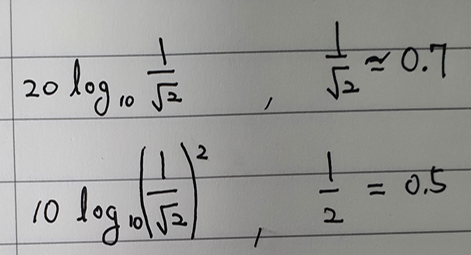 20 log₁₀ 1/√2 , 1/√2 ≃ 0.7
10 log₁₀(1/√2)² , 1/2 = 0.5